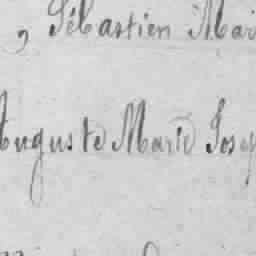 , Sébastien Mar
Auguste Marie Josep